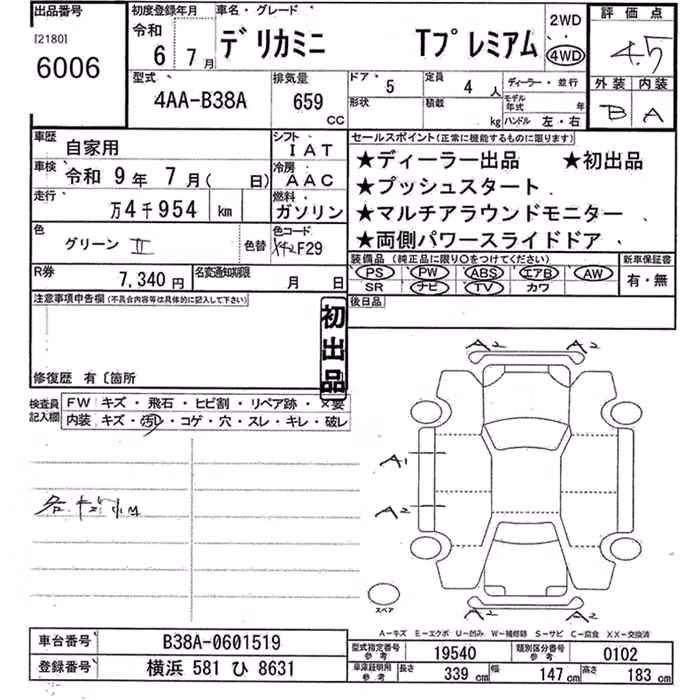 出品番号
[2180]
6006
初度登録年月
令和
6 年 7 月
車名・グレード
デリカミニ Tプレミアム
2WD
4WD
評価点
4.5
外装 内装
B A
型式
4AA-B38A
排気量
659
CC
ドア 5
形状
定員 4 人
積載 kg
ディーラー・並行
モデル年式 年
ハンドル 左・右
車歴 自家用
シフト IAT
車検 令和 9 年 7 月( 日)
冷房 AAC
走行 万4千954 km
燃料 ガソリン
色 グリーンⅡ 色替
色コード
X42F29
R券 7,340 円
名変通知期限 月 日
セールスポイント(正常に機能するものに限ります)
★ディーラー出品 ★初出品
★プッシュスタート
★マルチアラウンドモニター
★両側パワースライドドア
装備品(純正品に限り○をつけてください)
PS PW ABS エアB AW
SR ナビ TV カワ
新車保証書
有・無
後日品
注意事項申告欄(不具合内容等は具体的に記入して下さい)
初出品
修復歴 有〔箇所
検査員記入欄
FW キズ・飛石・ヒビ割・リペア跡・×要
内装 キズ・汚レ・コゲ・穴・スレ・キレ・破レ
A2 A2
A1
A2
A2 A2
スペア
A−キズ E−エクボ U−凹み W−補修跡 S−サビ C−腐食 XX−交換済
車台番号 B38A-0601519
登録番号 横浜 581 ひ 8631
型式指定番号 参考 19540
類別区分番号 参考 0102
車庫証明用 参考 長さ 339 cm 幅 147 cm 高さ 183 cm